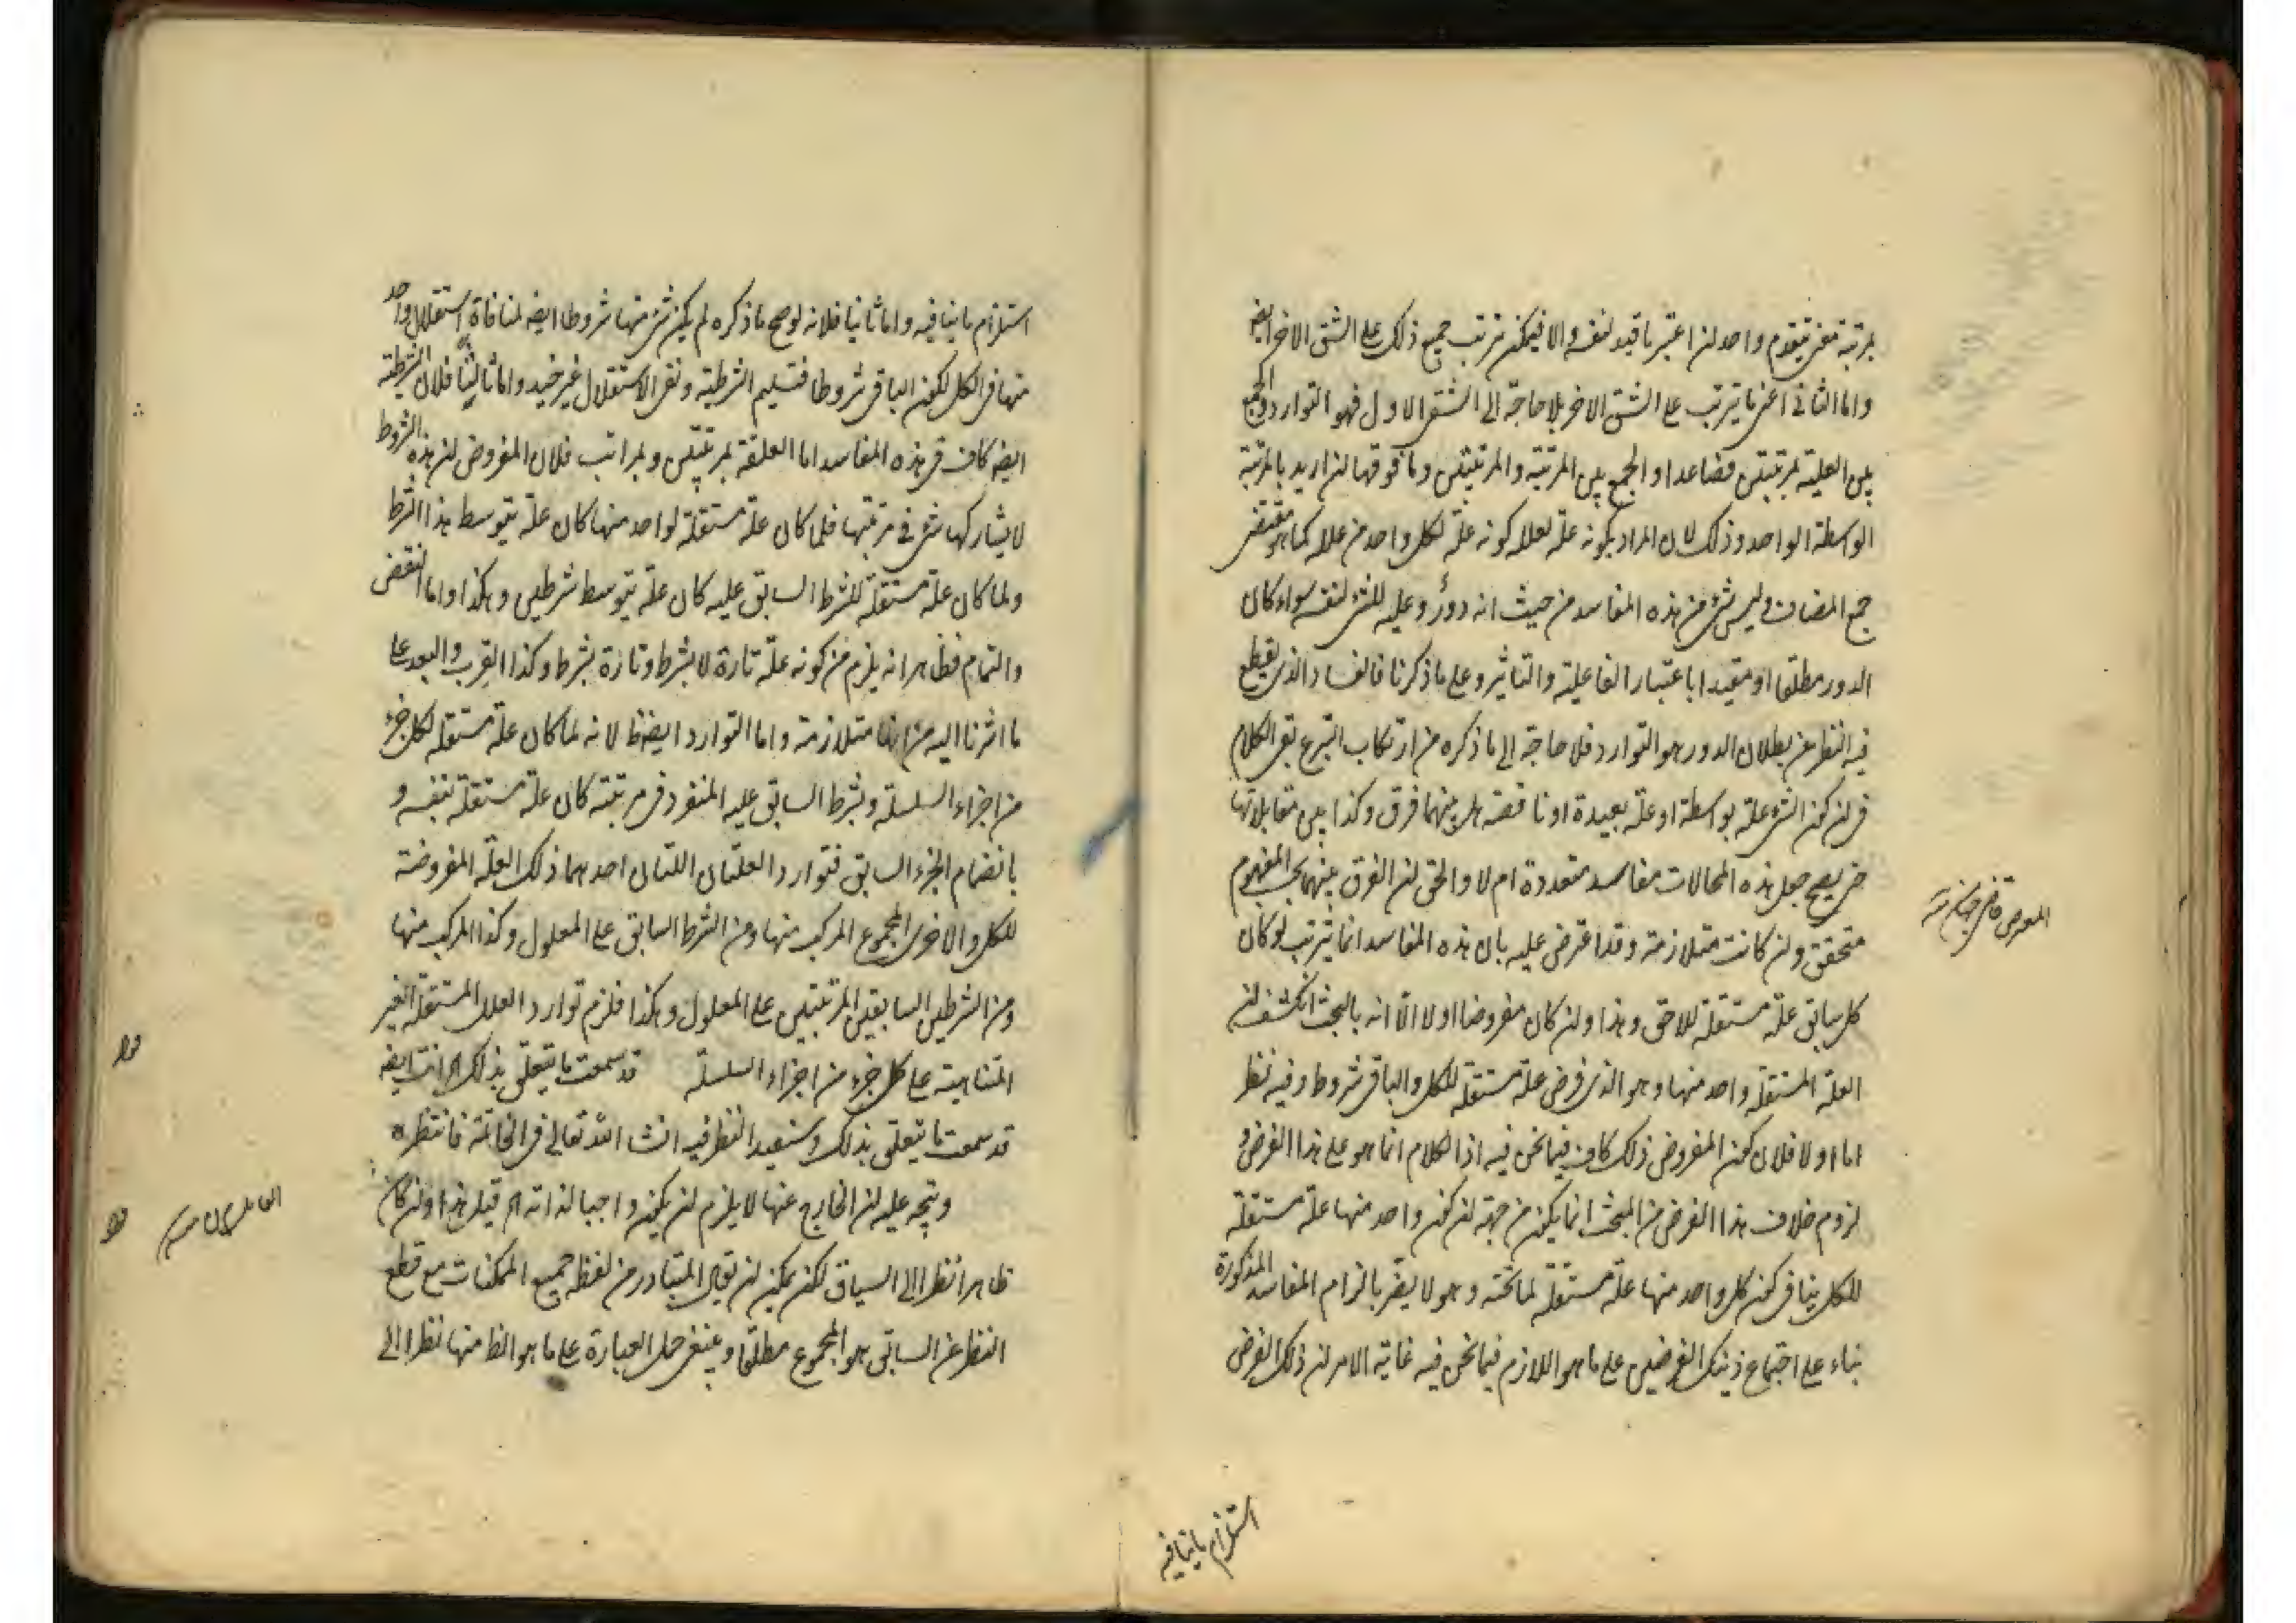 بمرتبة معنى يتقدم واحد لن اعتبر ما قيد لنفسه والا فيمكن ترتب جميع ذلك على الشق الاخر ايضه
واما الثانى اعنى ما يترتب على الشق الاخر بلا حاجة الى الشق الاول فهو التوارد والجمع
بين العلية بمرتبتين فصاعدا والجمع بين المرتبة والمرتبتين وما فوقها لن اريد بالمرتبة
الواسطة الواحد وذلك لان المراد بكونه علة لعلله كونه علة لكل واحد من علله كما هو مقتضى
جمع المضاف وليس شئ من هذه المفاسد من حيث انه دور وعلية للشئ لنفسه سواء كان
الدور مطلقا او مقيدا باعتبار الفاعلية والتاثير وعلى ما ذكرنا فالفساد الذى يقطع
فيه النظر عن بطلان الدور هو التوارد فلا حاجة الى ما ذكره من ارتكاب التبرع بقى الكلام
فى لن كون الشئ علة بواسطة او علة بعيدة او ناقصة هل بينهما فرق وكذا بين مقابلاتها
حتى يصح جعل هذه المحالات مفاسد متعددة ام لا والحق لن الفرق بينهما بحسب المفهوم
متحقق ولن كانت متلازمة وقد اعترض عليه بان هذه المفاسد انما يترتب لو كان
كل سابق علة مستقلة للاحق وهذا ولن كان مفروضا اولا الا انه بالبحث انكشف لن
العلة المستقلة واحد منها وهو الذى فرض علة مستقلة للكل والباقى شروط وفيه نظر
اما اولا فلان كون المفروض ذلك كاف فيما نحن فيه اذا الكلام انما هو على هذا الفرض و
لزوم خلاف هذا الفرض من المبحث انما يكون من جهة لن كون واحد منها علة مستقلة
للكل ينافى كون كل واحد منها علة مستقلة لما تحته وهو لا يضر بالزام المفاسد المذكورة
بناء على اجتماع ذينك الفرضين على ما هو اللازم فيما نحن فيه غاية الامر لن ذلك الفرض
استلزام ما ينافيه
استلزام ما ينافيه واما ثانيا فلانه لو صح ما ذكره لم يكن شئ منها شروطا ايضه لمنافاة استقلال واحد
منها فى الكل لكون الباقى شروطا فتسليم الشرطية ونفى الاستقلال غير مفيد واما ثالثا فلان الشرطية
ايضه كاف فى هذه المفاسد اما العلية بمرتبتين وبمراتب فلان المفروض لن هذه الشروط
لا يشاركها شئ فى مرتبتها فلما كان علة مستقلة لواحد منها كان علة بتوسط هذا الشرط
ولما كان علة مستقلة للشرط السابق عليه كان علة بتوسط شرطين وهكذا واما النقض
والتمام فظاهر انه يلزم من كونه علة تارة لا بشرط وتارة بشرط وكذا القرب والبعد على
ما اشرنا اليه من انها متلازمة واما التوارد ايضه فظ لانه لما كان علة مستقلة لكل جزء
من اجزاء السلسلة وبشرط السابق عليه المنفرد فى مرتبته كان علة مستقلة بنفسه و
بانضمام الجزء السابق فتوارد العلتان اللتان احدهما ذلك العلة المفروضة
للكل والاخرى المجموع المركب منها ومن الشرط السابق على المعلول وكذا المركب منها
ومن الشرطين السابقين المرتبتين على المعلول وهكذا فلزم توارد العلل المستقلة الغير
المتناهية على كل جزء من اجزاء السلسلة قد سمعت ما يتعلق بذلك اه انت ايضه
قد سمعت ما يتعلق بذلك وسنعيد النظر فيه انشا الله تعالى فى الخاتمة فانتظره
ويتجه عليه لن الخارج عنها لا يلزم لن يكون واجبا لذاته اه قيل هذا ولن كان
ظاهرا نظرا الى السياق لكن يمكن لن يقال المتبادر من لفظه جميع الممكنات مع قطع
النظر عن السابق هو المجموع مطلقا وينبغى حمل العبارة على ما هو الظ منها نظرا الى
قوله
قوله